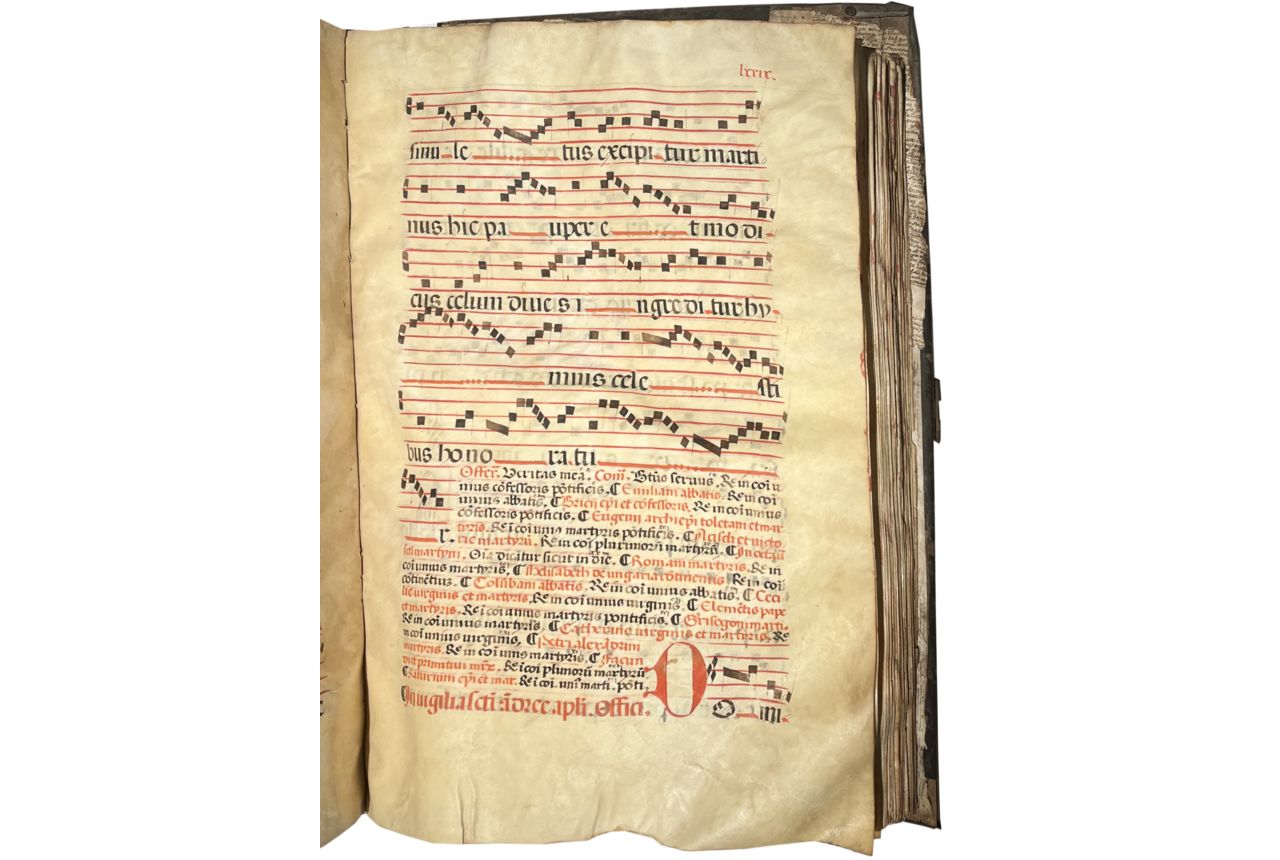 lxxix.
simu le tus excipi tur marti
nus hic pa uper e t modi
cus celum dives i ngredi tur hy
mnis cele sti
bus hono ra tu
r.
Offer. Veritas mea. Com. Btus servus. Re in coi u
nius cōfessoris pōtificis. ¶ Emiliani abbatis. Re in coi
unius abbatis. ¶ Bricii epi et cōfessoris. Re in coi unius
cōfessoris pōtificis. ¶ Eugenii archiepi toletani et mar
tyris. Re i coi unius martyris pōtificis. ¶ Aciscli et victo
rie martyrū. Re in coi plurimorū martyrū. ¶ In octa
sci martini. Oīa dicātur sicut in die. ¶ Romani martyris. Re in
coi unius martyris. ¶ Helisabeth de ungaria continentis Re in coi
cōtinētiuz. ¶ Colūbani abbatis. Re in coi unius abbatis. ¶ Ceci
lie virginis et martyris. Re in coi unius virginis. ¶ Clemētis pape
et martyris. Re i coi unius martyris pontificis. ¶ Grisogoni marti.
Re in coi unius martyris. ¶ Catherine virginis et martyris. Re
in coi unius virginis. ¶ Petri alexādrini
martyris. Re in coi unius martyris. ¶ Facun
di et primitivi mr̄z. Re i coi plimorū martyrū
¶ Saturnini epi et mar. Re i coi. uni marti. pōti.
¶ In vigilia scti ādree apli. Offici. O
O mi